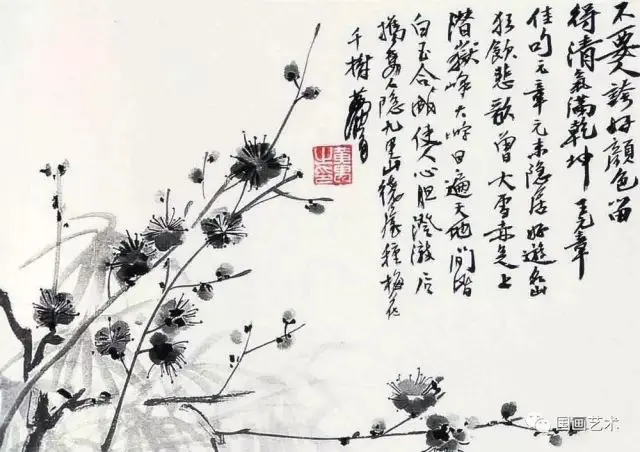 不要人誇好顏色留
得清氣滿乾坤 王元章
佳句元章元末隱居好遊名山
狂飲悲歌曾大雪赤足上
潛嶽峰大呼曰遍天地間皆
白玉合成使人心膽澄澈后
攜妻隱九里山繞屋種梅花
千樹
国画艺术